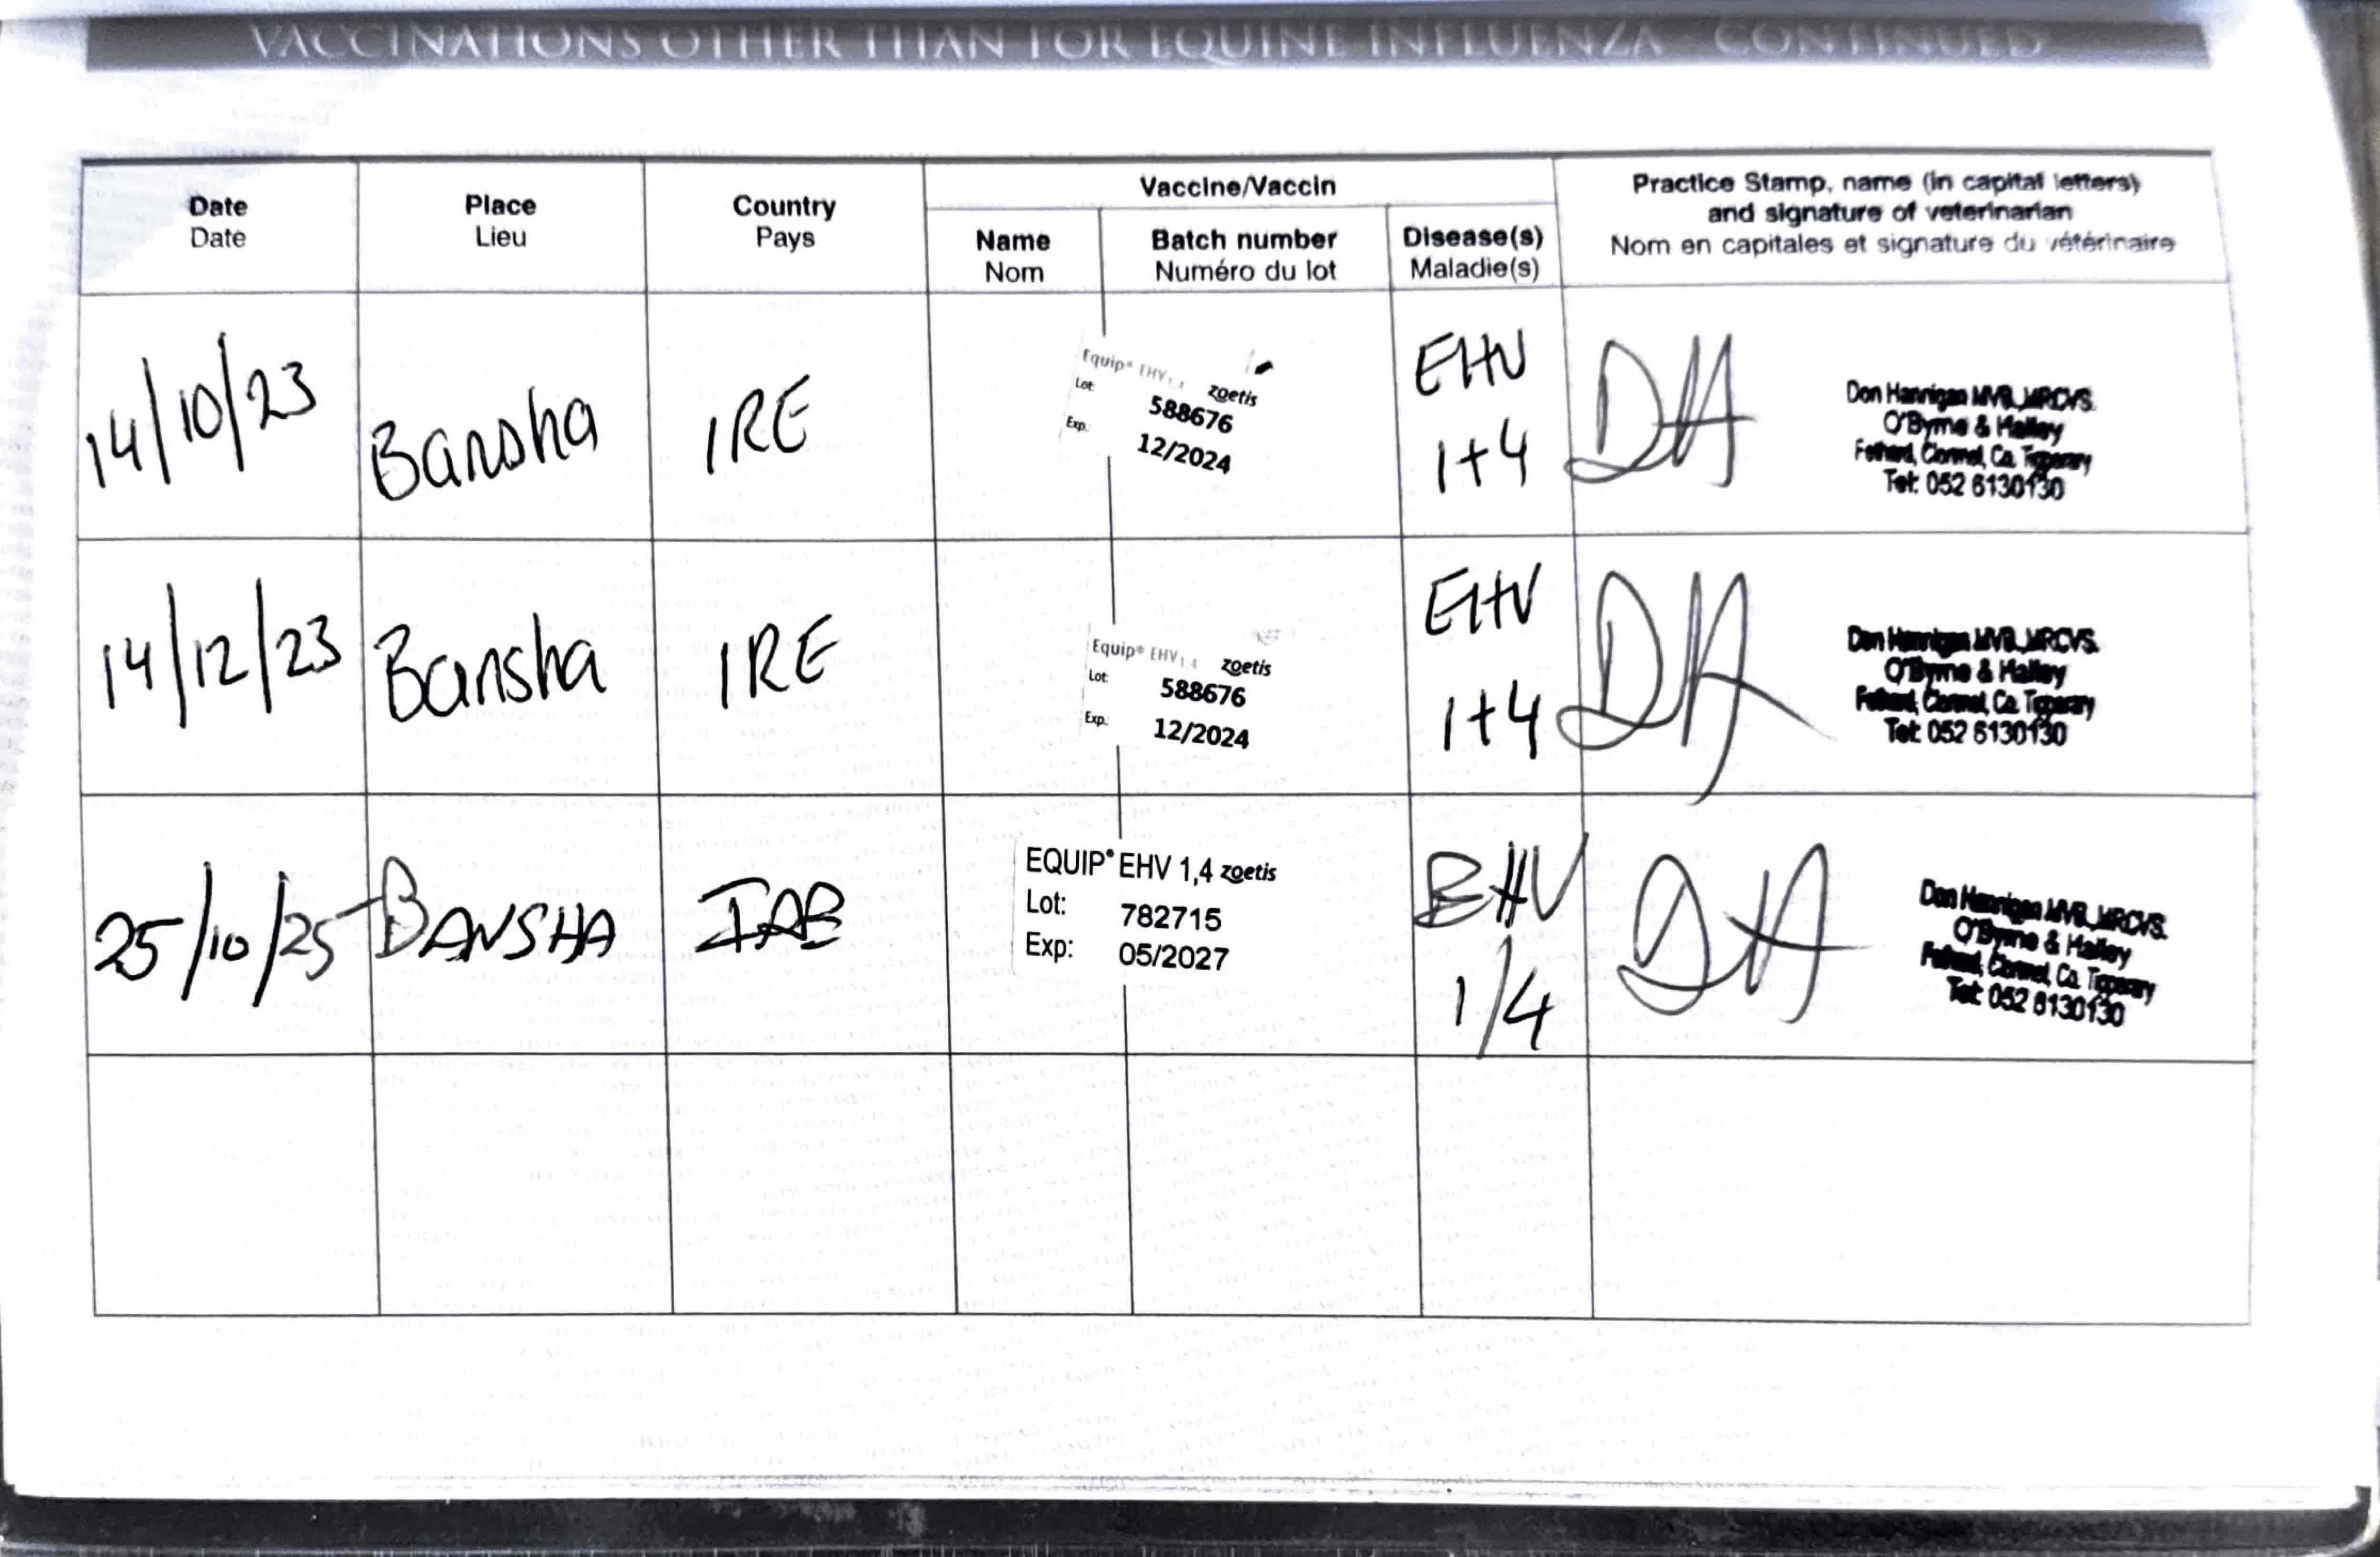 VACCINATIONS OTHER THAN FOR EQUINE INFLUENZA - CONTINUED
Date
Date
Place
Lieu
Country
Pays
Vaccine/Vaccin
Name
Nom
Batch number
Numéro du lot
Disease(s)
Maladie(s)
Practice Stamp, name (in capital letters)
and signature of veterinarian
Nom en capitales et signature du vétérinaire
14/10/23
Bansha
IRE
Equip® EHV 1,4 zoetis
Lot: 588676
Exp. 12/2024
EHV
1+4
DH
Don Hannigan MVB, MRCVS.
O'Byrne & Halley
Fethard, Clonmel, Co. Tipperary
Tel: 052 6130130
14/12/23
Bansha
IRE
Equip® EHV 1,4 zoetis
Lot: 588676
Exp.: 12/2024
EHV
1+4
DH
Don Hannigan MVB, MRCVS.
O'Byrne & Halley
Fethard, Clonmel, Co. Tipperary
Tel: 052 6130130
25/10/25
BANSHA
EQUIP® EHV 1,4 zoetis
Lot: 782715
Exp: 05/2027
EHV
1/4
DH
Don Hannigan MVB, MRCVS.
O'Byrne & Halley
Fethard, Clonmel, Co. Tipperary
Tel: 052 6130130